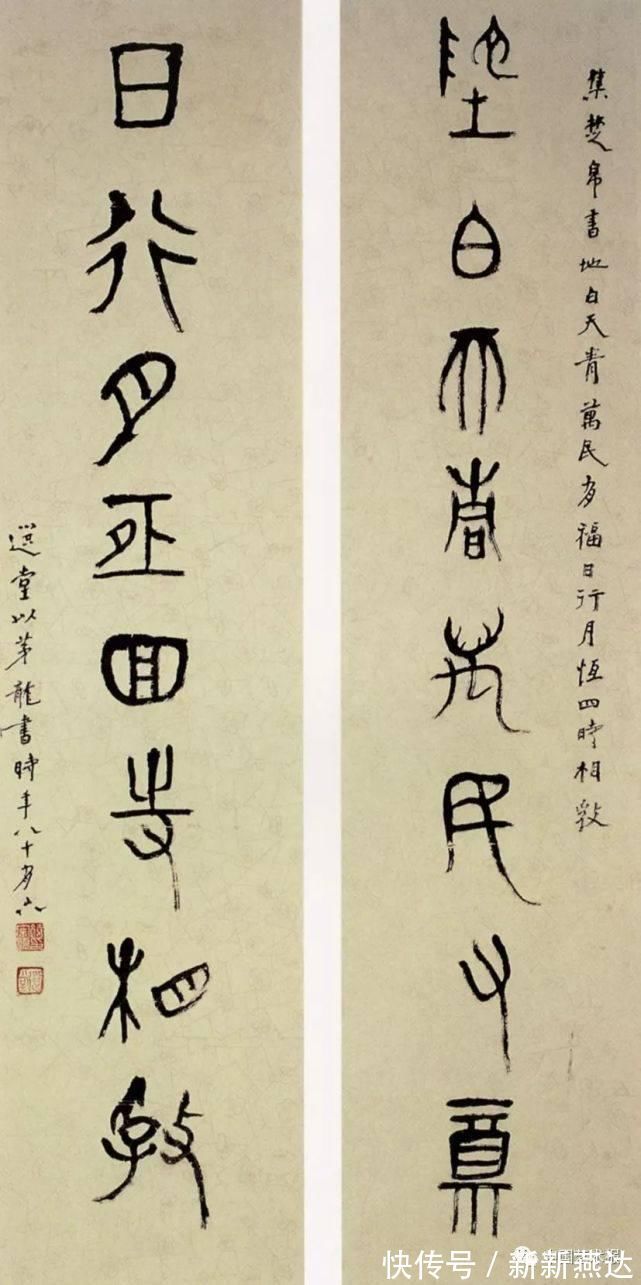 集楚帛書地白天青萬民有福日行月恆四時相教
地白天青萬民有福
日行月恆四時相教
選堂以茅龍書時年八十有六
快传号 / 新新燕达